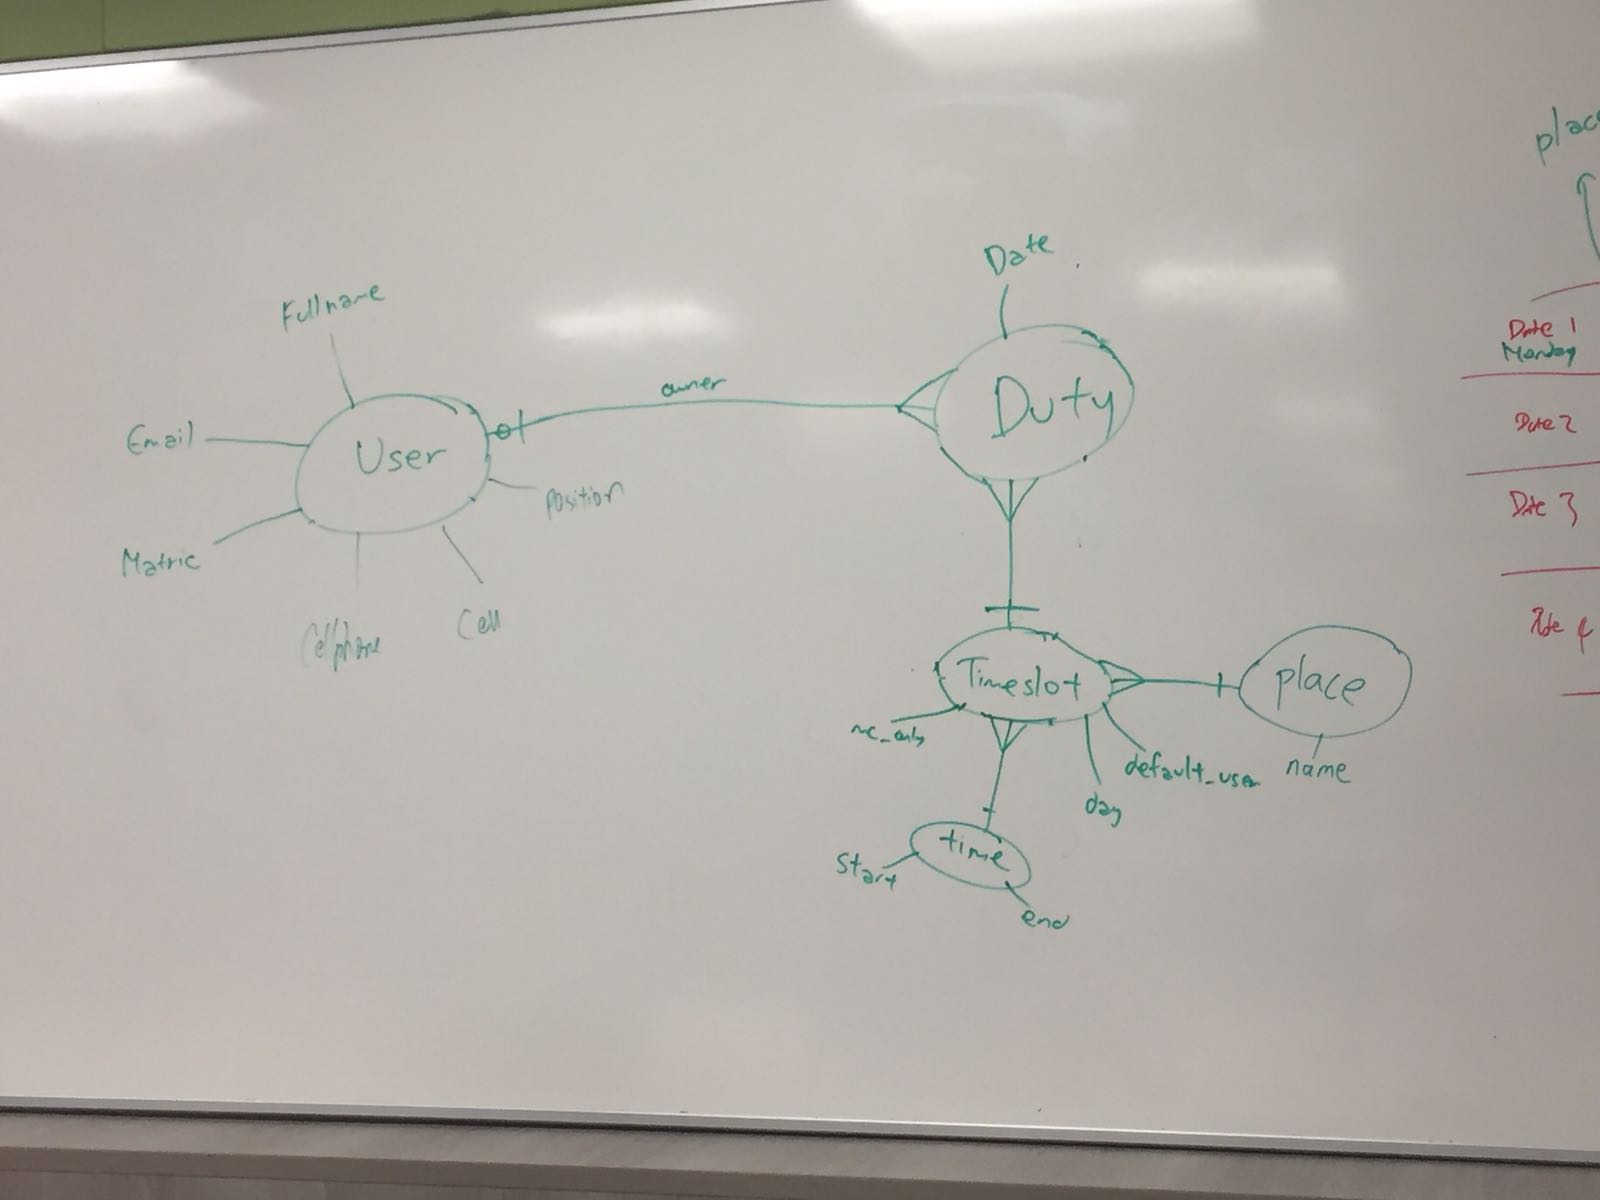 Fullname
Email
User
Matric
Cellphone
Cell
Position
owner
Date
Duty
Timeslot
mc_only
default_user
day
place
name
time
Start
end
Date 1
Monday
Date 2
Date 3